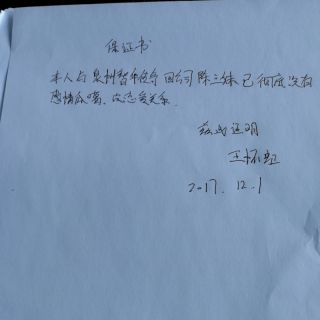 保证书
本人与泉州智和 公司陈三妹已彻底没有
感情瓜葛、及恋爱关系.
兹此证明
王怀
2017.12.1